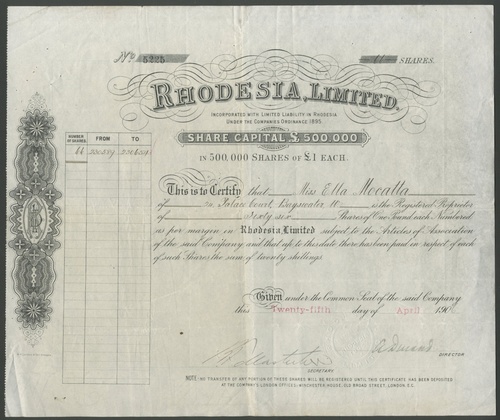 No 5225 66 SHARES.
RHODESIA, LIMITED.
INCORPORATED WITH LIMITED LIABILITY IN RHODESIA
UNDER THE COMPANIES ORDINANCE 1895.
SHARE CAPITAL £500,000
IN 500,000 SHARES OF £1 EACH.
NUMBER OF SHARES. FROM TO
66
This is to Certify that Miss Ella Mocatta
of Palace Court, Bayswater W is the Registered Proprietor
of Sixty six Shares of One Pound each Numbered
as per margin in Rhodesia Limited subject to the Articles of Association
of the said Company and that up to this date there has been paid in respect of each
of such Shares the sum of twenty shillings.
Given under the Common Seal of the said Company
this Twenty-fifth day of April 190
DIRECTOR
SECRETARY
NOTE: NO TRANSFER OF ANY PORTION OF THESE SHARES WILL BE REGISTERED UNTIL THIS CERTIFICATE HAS BEEN DEPOSITED
AT THE COMPANY'S LONDON OFFICES: WINCHESTER HOUSE, OLD BROAD STREET, LONDON. E.C.